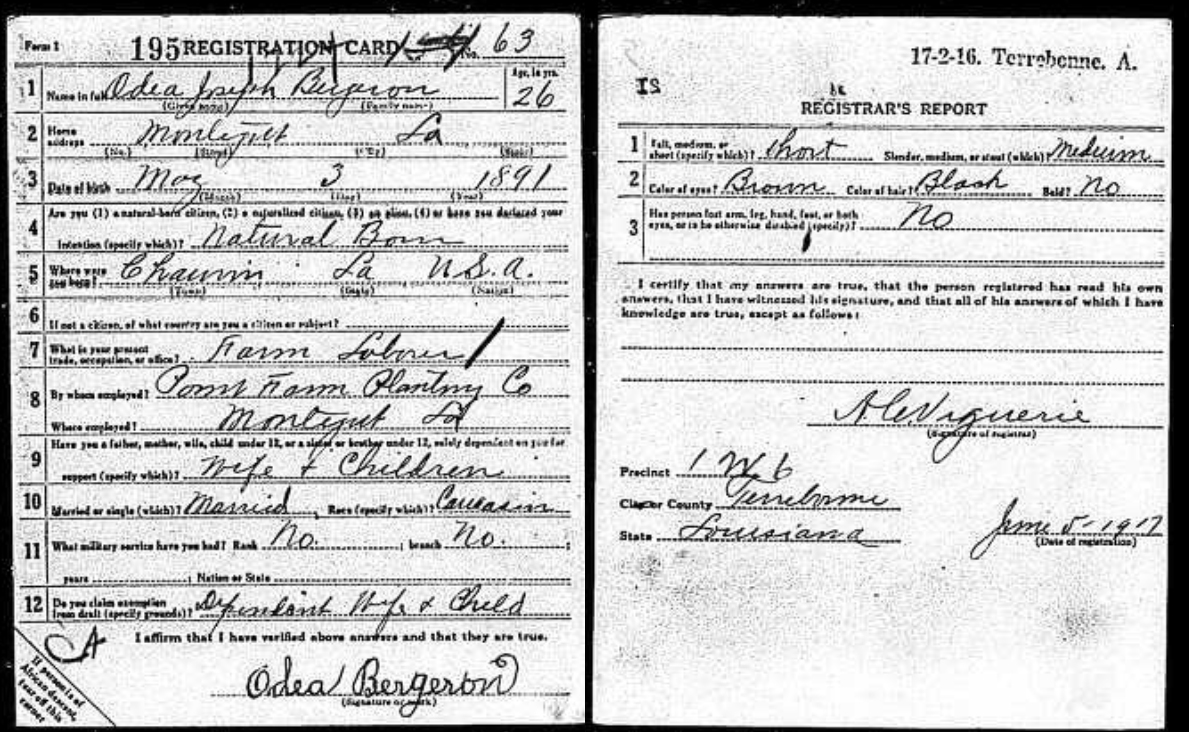 Form 1
195 REGISTRATION CARD No. 63
1 Name in full Odea Joseph Bergeron Age, in yrs. 26
(Given name) (Family name)
2 Home address Montegut La
(No.) (Street) (City) (State)
3 Date of birth May 3 1891
(Month) (Day) (Year)
4 Are you (1) a natural-born citizen, (2) a naturalized citizen, (3) an alien, (4) or have you declared your
intention (specify which)? Natural Born
5 Where were you born? Chauvin La U.S.A.
(Town) (State) (Nation)
6 If not a citizen, of what country are you a citizen or subject?
7 What is your present trade, occupation, or office? Farm Laborer
8 By whom employed? Point Farm Planting Co
Where employed? Montegut La
9 Have you a father, mother, wife, child under 12, or a sister or brother under 12, solely dependent on you for
support (specify which)? Wife & Children
10 Married or single (which)? Married Race (specify which)? Caucasin
11 What military service have you had? Rank No. ; branch No. ;
years ; Nation or State
12 Do you claim exemption from draft (specify grounds)? Dependant Wife & Child
I affirm that I have verified above answers and that they are true.
Odea Bergeron
(Signature or mark)
If person is of African descent, tear off this corner
17-2-16. Terrebonne. A.
REGISTRAR'S REPORT
1 Tall, medium, or short (specify which)? Short Slender, medium, or stout (which)? Medium
2 Color of eyes? Brown Color of hair? Black Bald? No
3 Has person lost arm, leg, hand, foot, or both eyes, or is he otherwise disabled (specify)? No
I certify that my answers are true, that the person registered has read his own
answers, that I have witnessed his signature, and that all of his answers of which I have
knowledge are true, except as follows:
A C Viguerie
(Signature of registrar)
Precinct 1 W 6
City or County Terrebonne
State Louisiana June 5-1917
(Date of registration)